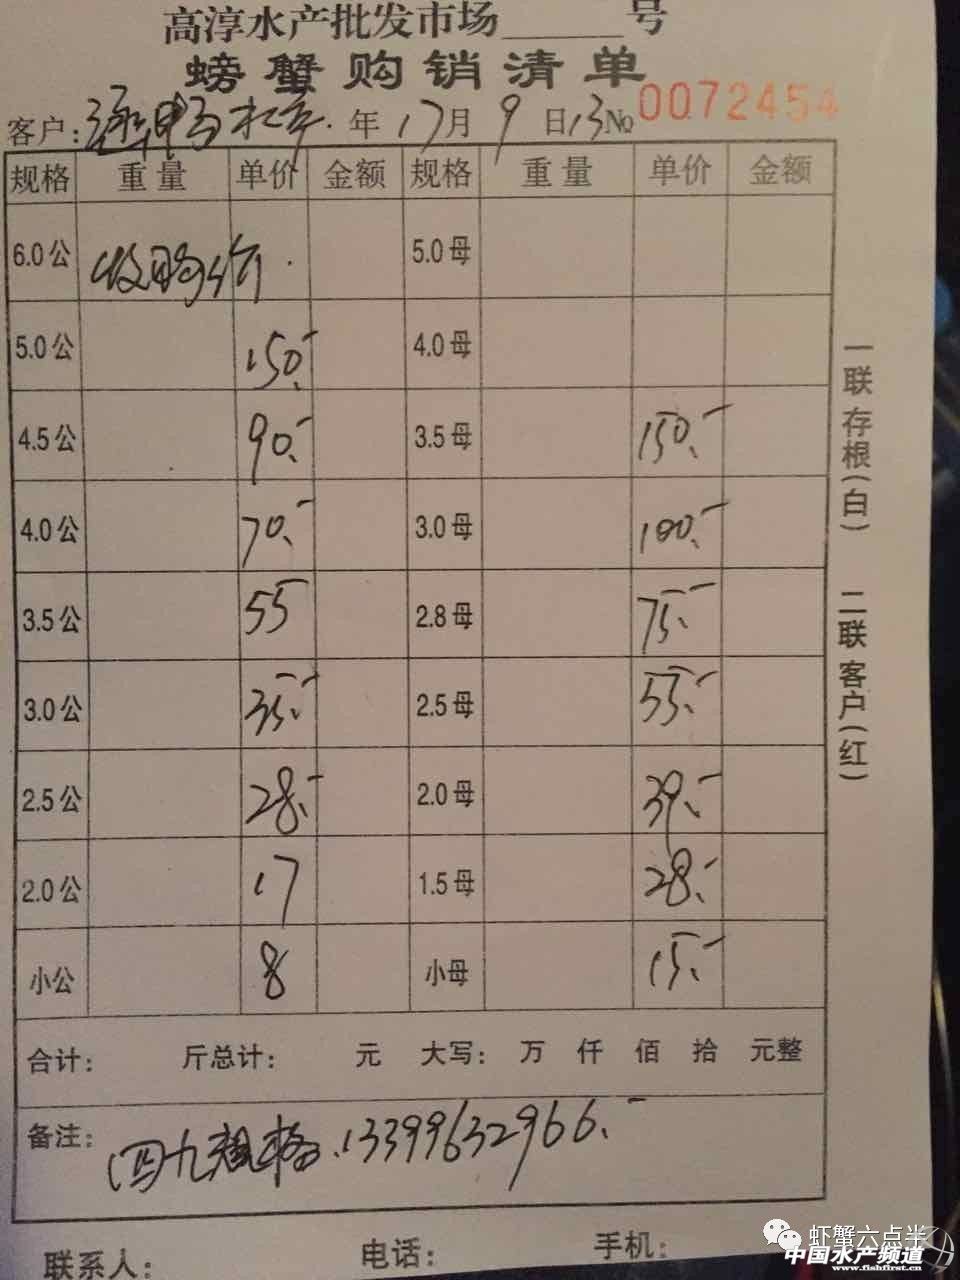 高淳水产批发市场______号
螃蟹购销清单
客户: 年17月9日13 No 0072454
规格 重量 单价 金额 规格 重量 单价 金额
6.0公 收购价. 5.0母
5.0公 150.- 4.0母
4.5公 90.- 3.5母 150.-
4.0公 70.- 3.0母 100.-
3.5公 55 2.8母 75.-
3.0公 35.- 2.5母 55.-
2.5公 28.- 2.0母 39.-
2.0公 17 1.5母 28.-
小公 8 小母 15.-
合计: 斤总计: 元 大写: 万 仟 佰 拾 元整
备注: 四九规格.13399632966.-
联系人: 电话: 手机:
一联存根(白) 二联客户(红)
虾蟹六点半
中国水产频道
www.fishfirst.cn